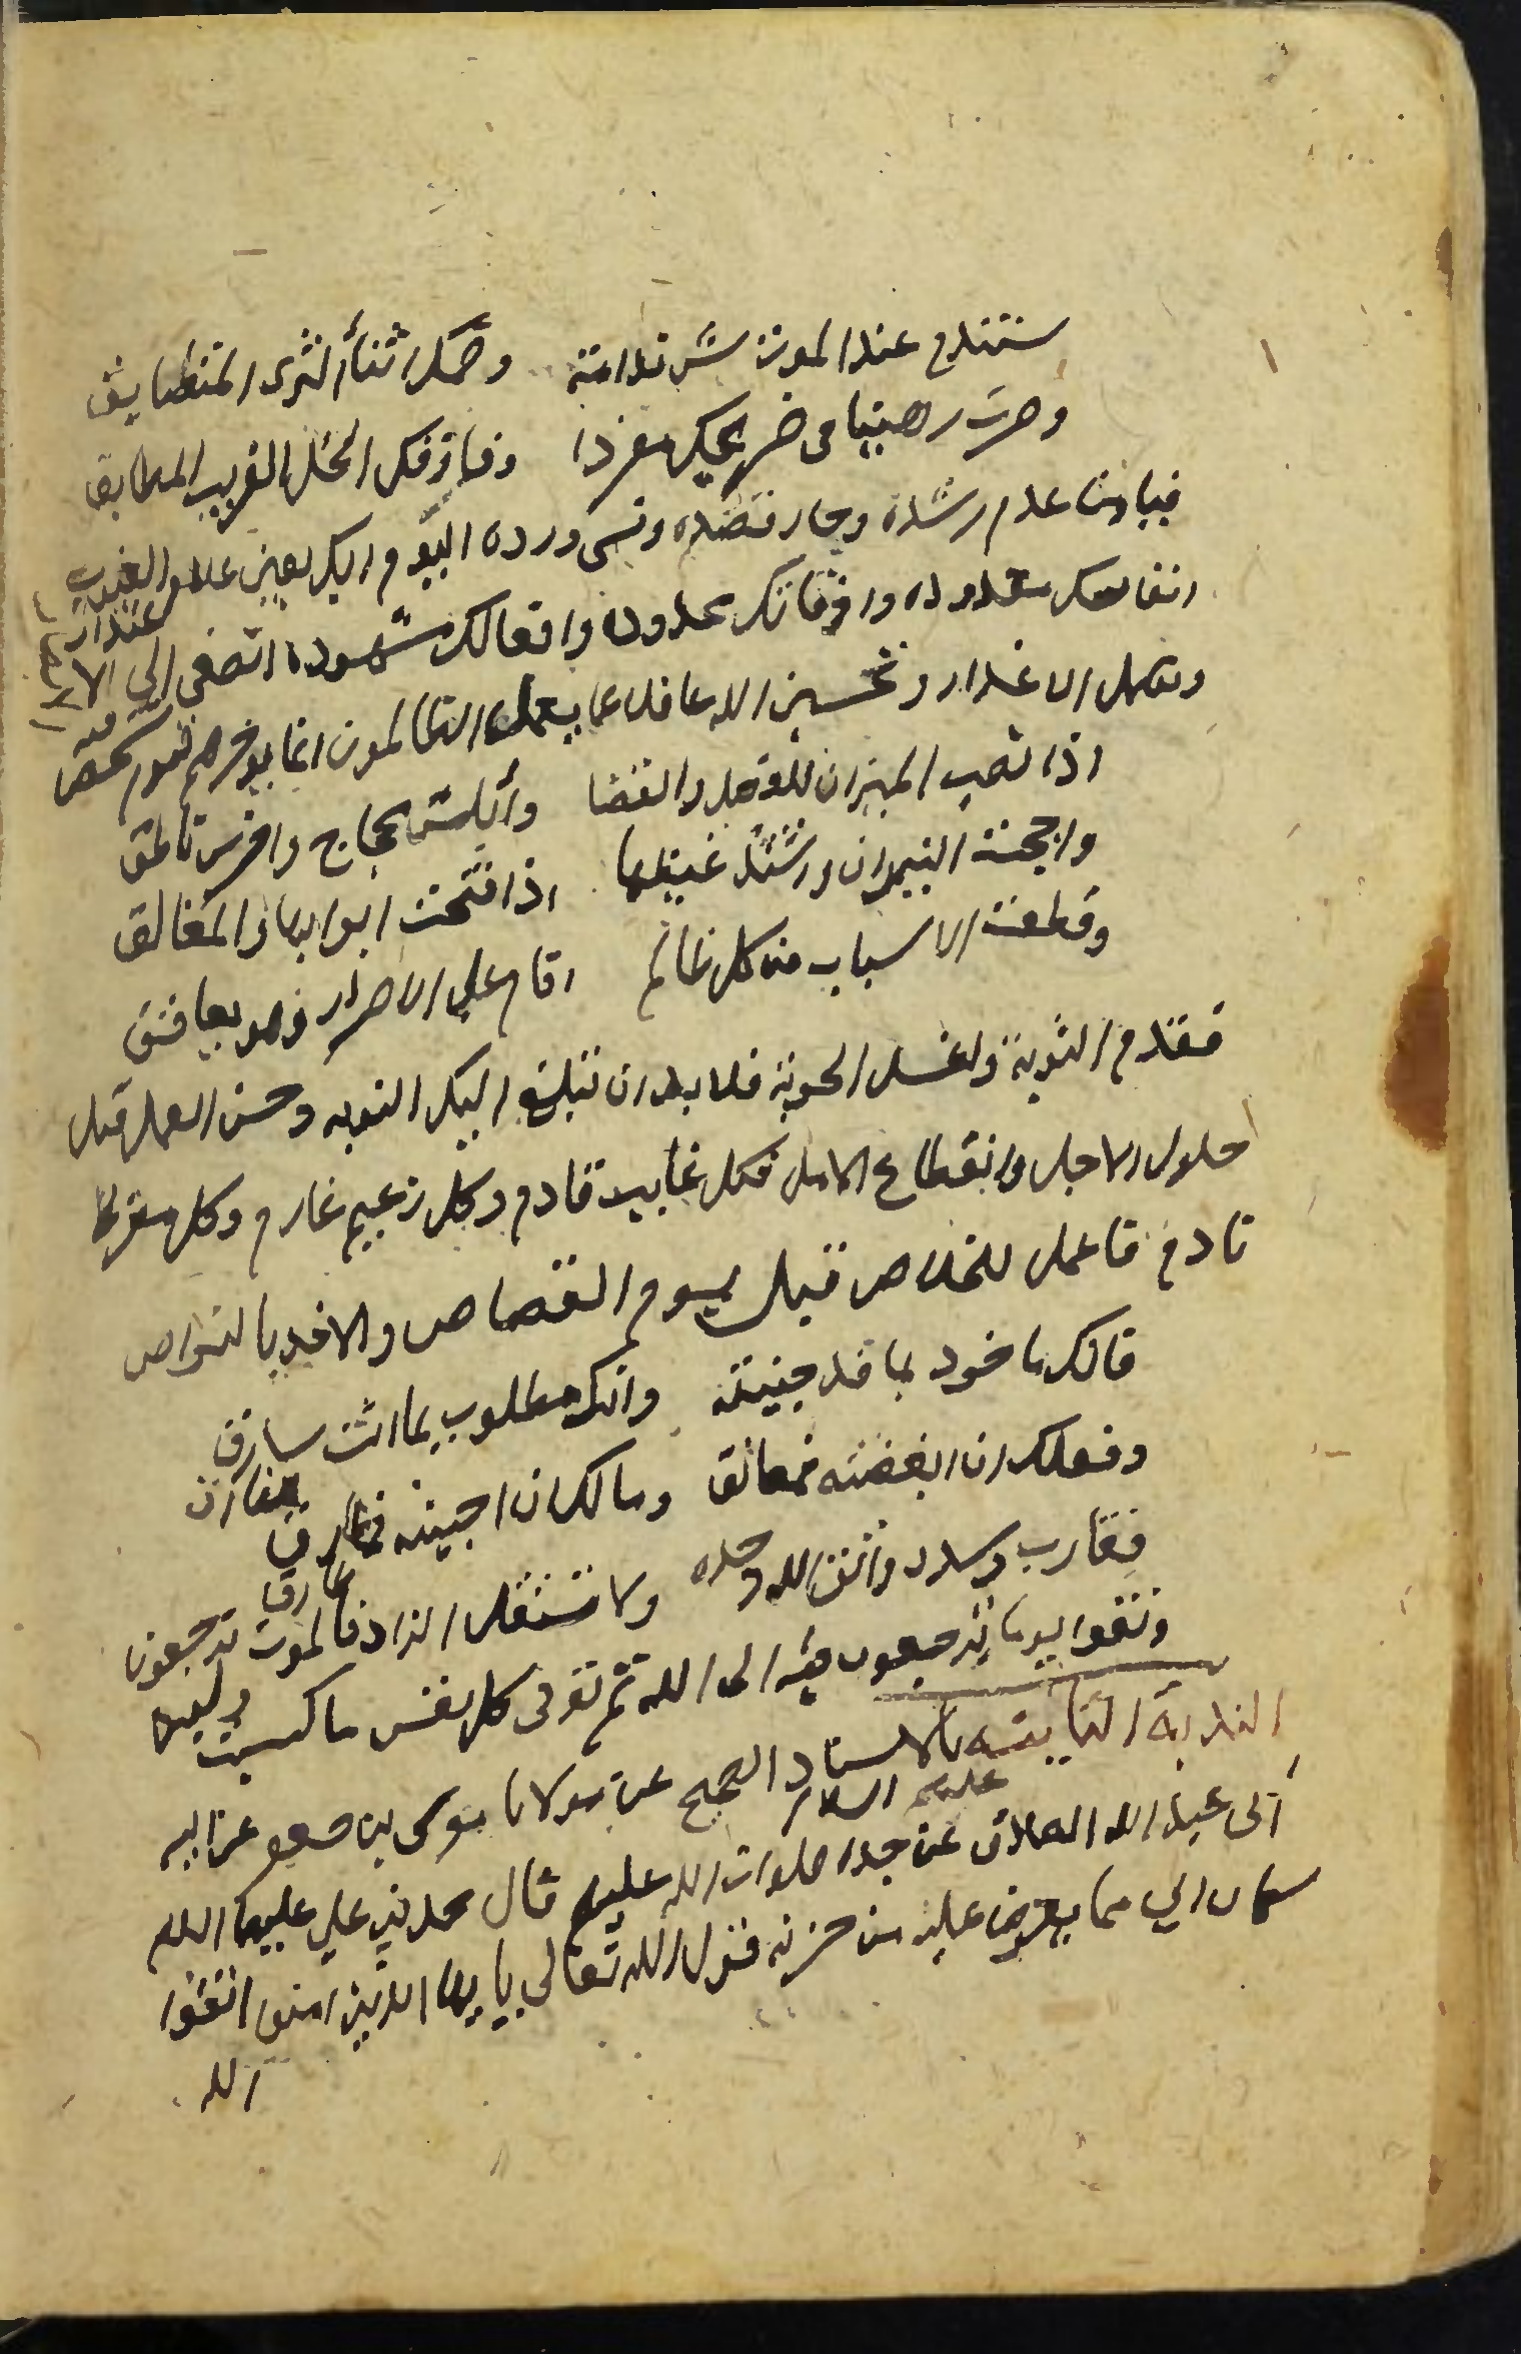 ستندم عند الموت شر ندامة وضمك اثناء الثرى المتضايق
وصرت رهينا في ضريحك مفردا وفارقك الخل القريب الملاصق
فيا من عدم رشده وجار قصده ونسى ورده اليوم اليك يعني علام الغيوب
انفاسك معدوده واوقاتك محدوده وافعالك مشهوده اتصغي الى الاعتذار
وتهمل الانذار وتحسبن الله غافلا عما يعمل الظالمون انما يوخرهم ليوم تشخص فيه
اذا نصب الميزان للفصل والقضا وأبلس محجاج واخرس ناطق
واججت النيران واشتد غيظها اذا فتحت ابوابها والمغالق
وقطعت الاسباب من كل ظالم اقام على الاصرار وهو ينافق
فقدم التوبة واغسل الحوبة فلا بد ان تبلغ اليك النوبه وحسن العمل قبل
حلول الاجل وانقطاع الامل فكل غايب قادم وكل زعيم غارم وكل مفرط
نادم فاعمل للخلاص قبل يوم القصاص والاخذ بالنواص
فانك ماخوذ بما قد جنيته وانك مطلوب بما انت سارق
وفعلك ان ابغضته فمعانق ومالك ان احببته فمفارق
فقارب وسدد واتق الله وحده ولا تستقل الزاد فالموت طارق
واتقوا يوما ترجعون فيه الى الله ثم توفى كل نفس ما كسبت
الندبة الثانية بالاسناد الصحيح عن مولانا موسى بن جعفر عن ابيه
ابي عبد الله الصادق عن جده صلوات الله عليهم قال محمد بن علي عليهما السلم
كان ابي مما يعرض عليه من حزنه قول الله تعالى يا ايها الذين امنوا اتقوا
الله